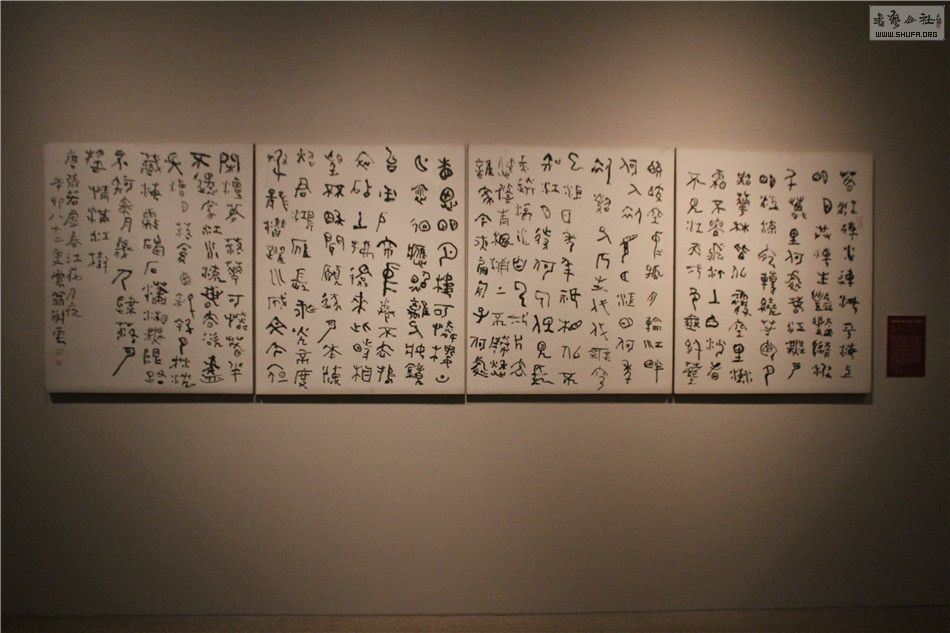 春江潮水連海平海上
明月共潮生灔灔隨波
千萬里何處春江無月
明江流宛轉繞芳甸月
照花林皆似霰空里流
霜不覺飛汀上白沙看
不見江天一色無纖塵
皎皎空中孤月輪江畔
何人初見月江月何年
初照人人生代代無窮
已江月年年祇相似不
知江月待何人但見長
江送流水白雲一片去
悠悠青楓浦上不勝愁
誰家今夜扁舟子何處
相思明月樓可憐樓上
月徘徊應照離人妝鏡
臺玉戶簾中卷不去搗
衣砧上拂還來此時相
望不相聞願逐月華流
照君鴻雁長飛光不度
魚龍潛躍水成文昨夜
閑潭夢落花可憐春半
不還家江水流春去欲盡
江潭落月復西斜斜月沉沉
藏海霧碣石瀟湘無限路
不知乘月幾人歸落月
搖情滿江樹
唐張若虛春江花月夜
辛卯八十二叟雲翁
書藝公社
WWW.SHUFA.ORG